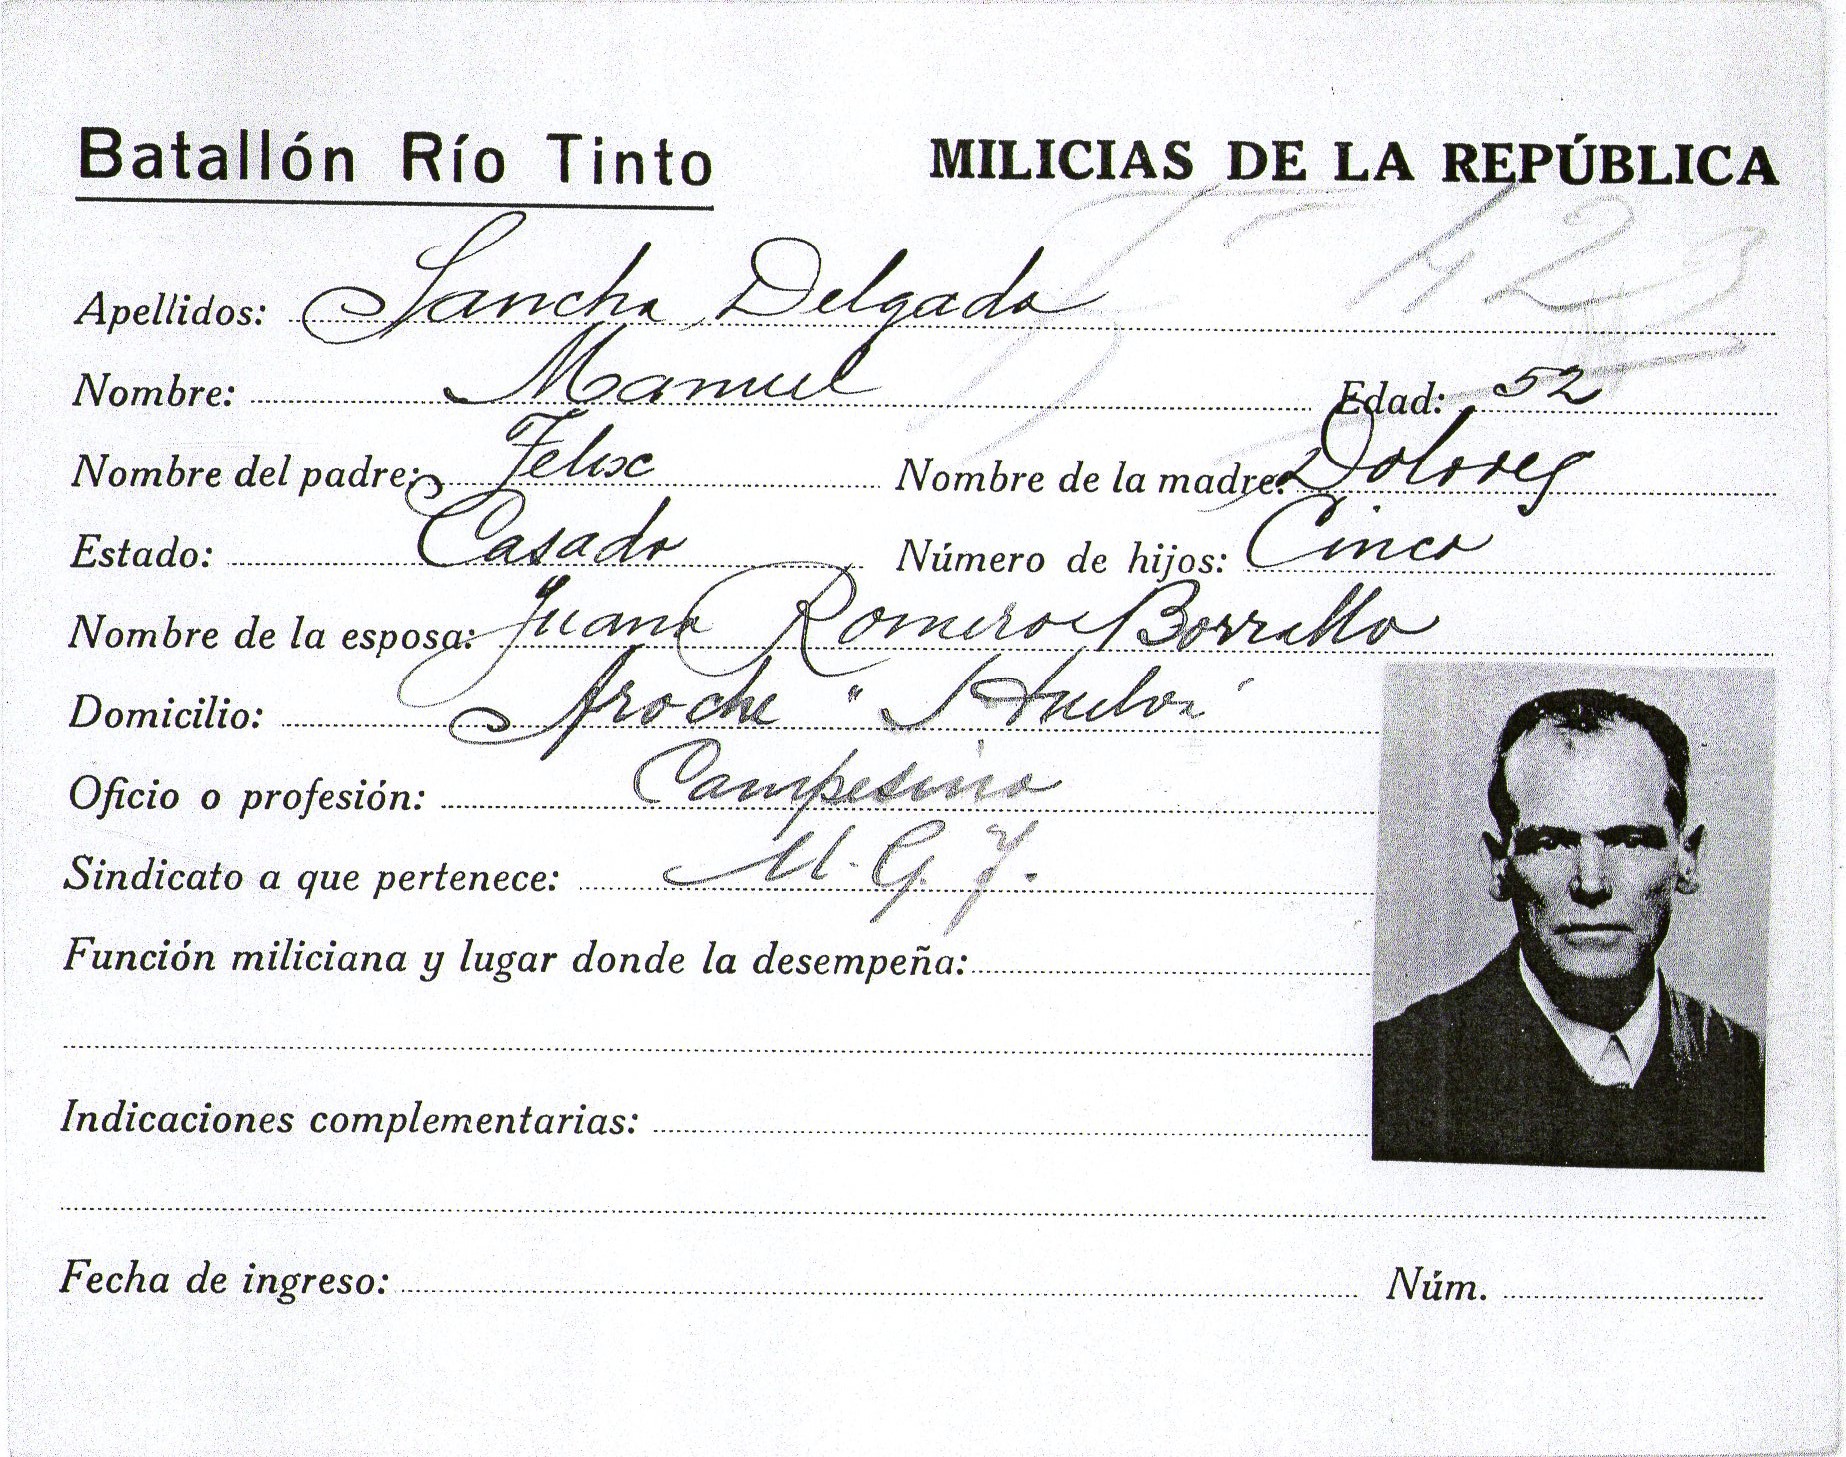 Batallón Río Tinto MILICIAS DE LA REPÚBLICA
Apellidos: Sancha Delgado
Nombre: Manuel Edad: 52
Nombre del padre: Felix Nombre de la madre: Dolores
Estado: Casado Número de hijos: Cinco
Nombre de la esposa: Juana Romero Borrallo
Domicilio: Aroche "Huelva"
Oficio o profesión: Campesino
Sindicato a que pertenece: U.G.T.
Función miliciana y lugar donde la desempeña:
Indicaciones complementarias:
Fecha de ingreso: Núm.